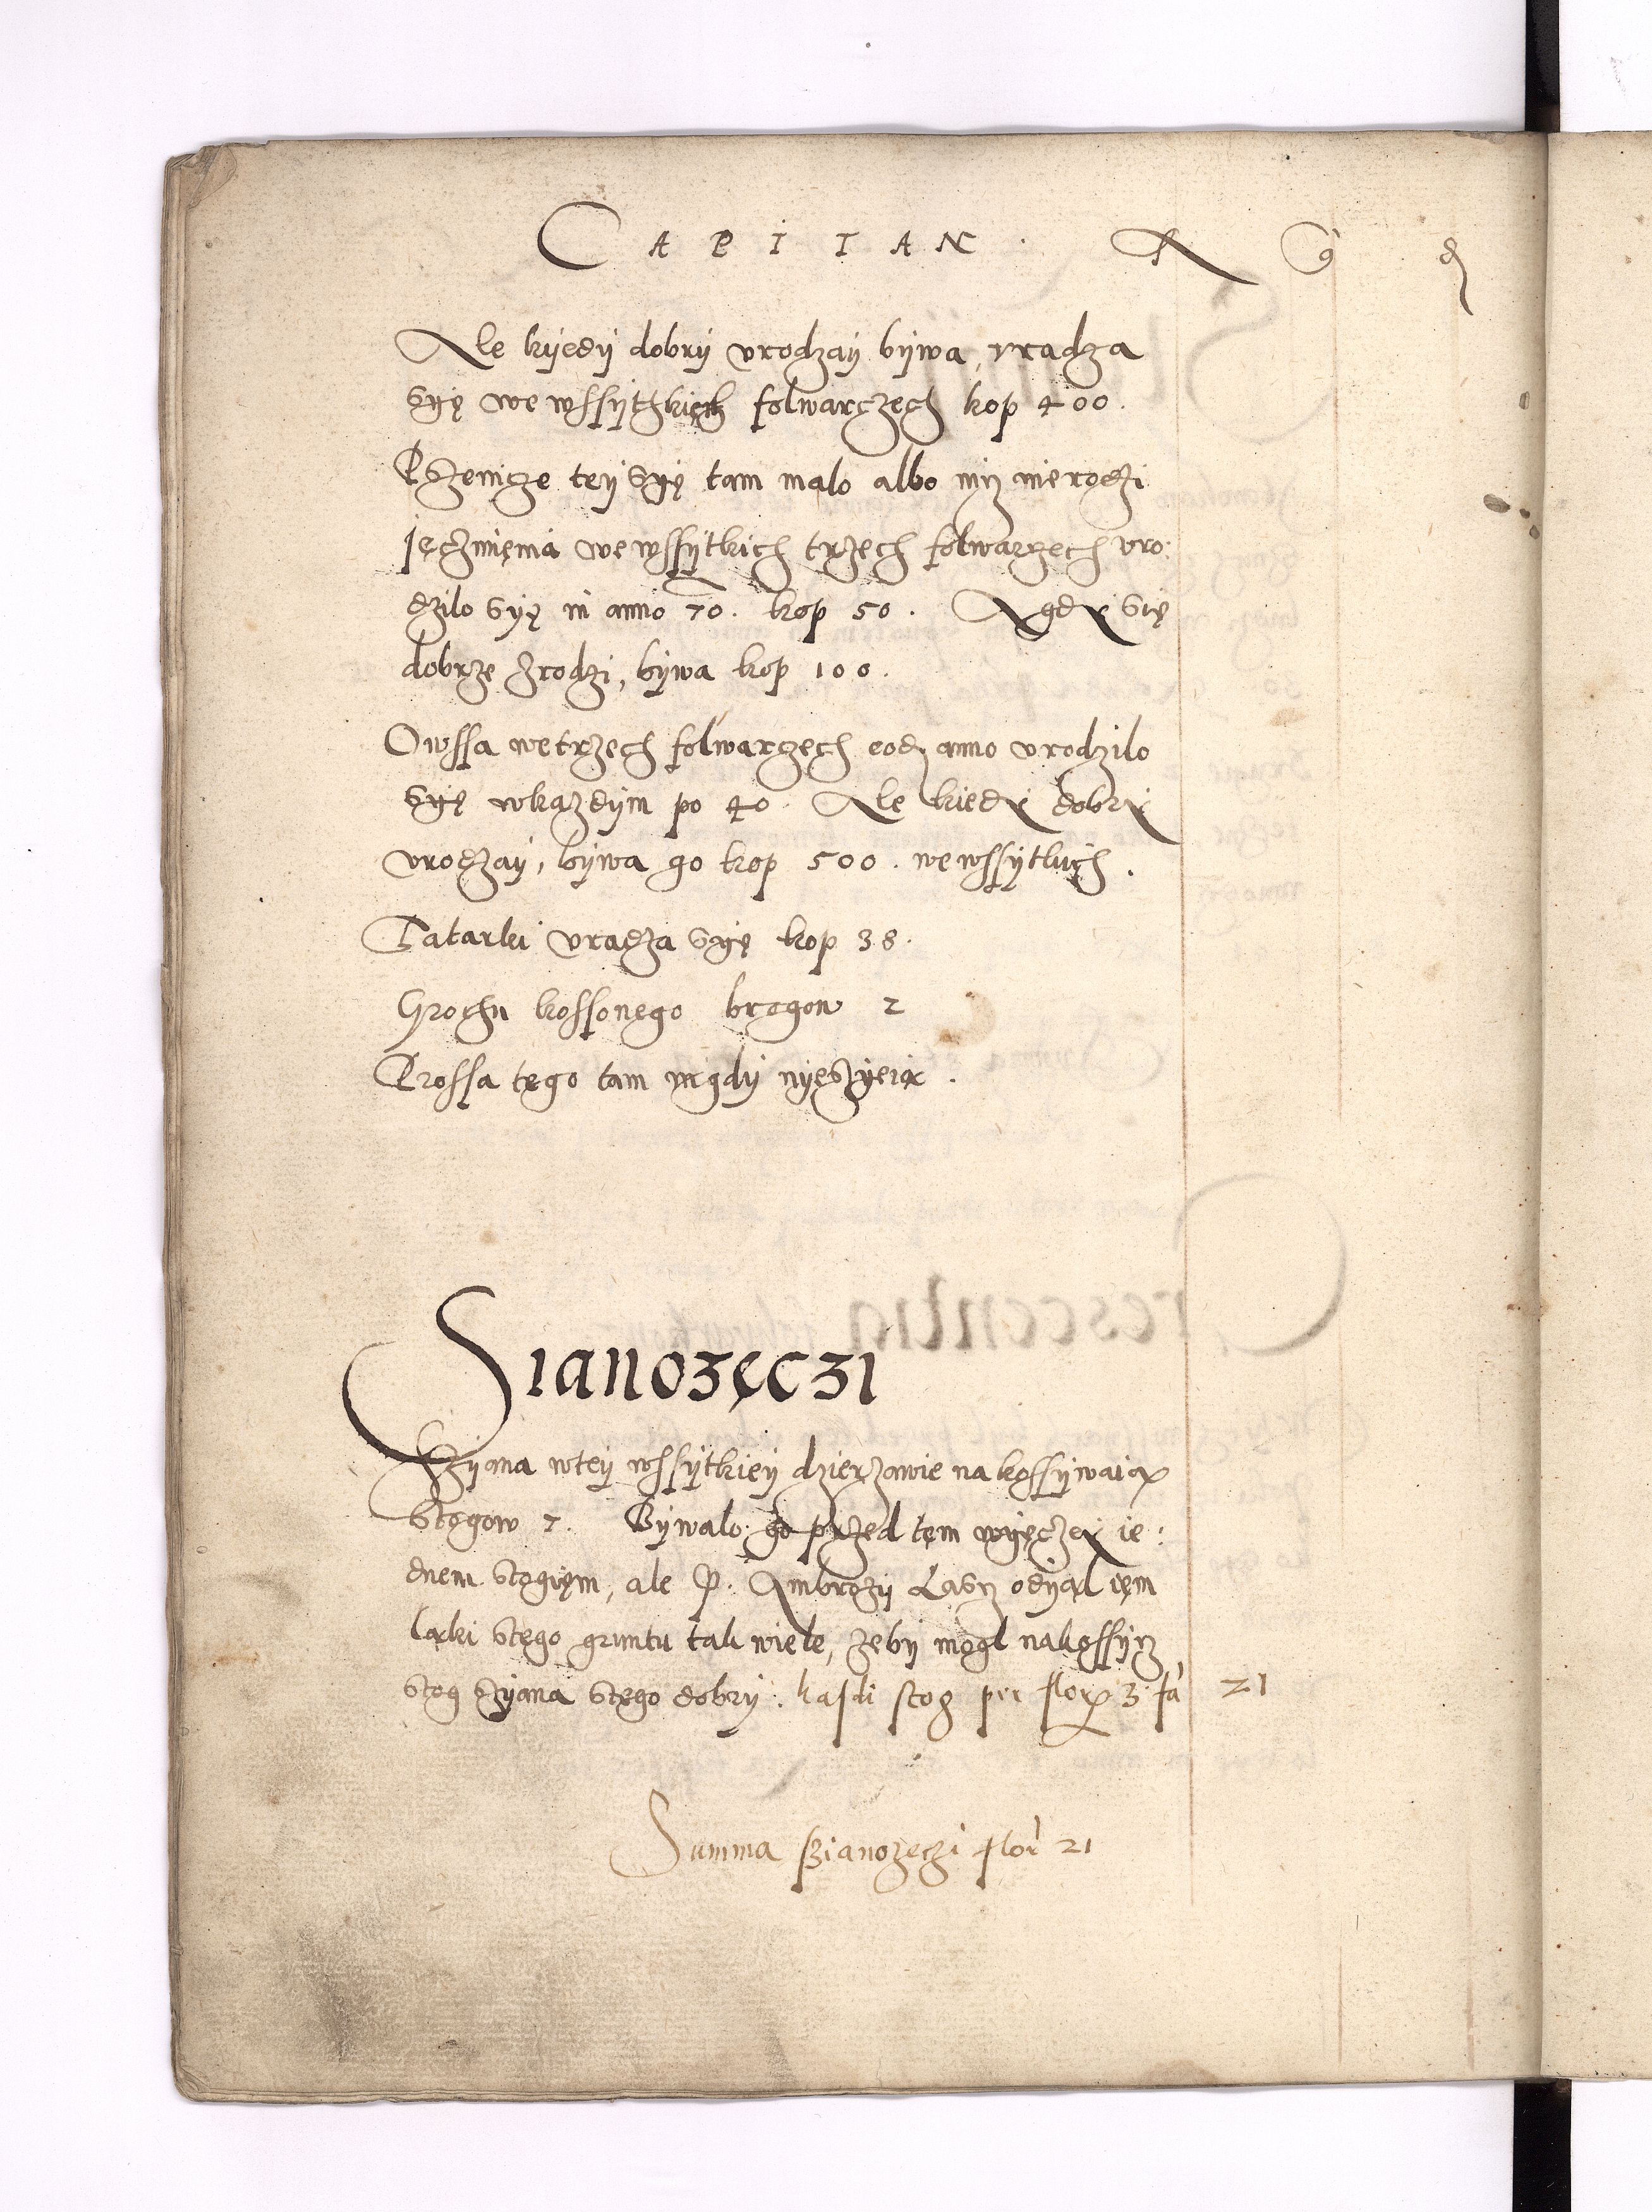 CAPITAN.
Ale kyedy dobry vrodzay bywa, vradza
syę we wssythkich folwarczech kop 400.
Pszenicze tey syę tam malo albo nyz nierodzi
jęczmięnia we wssytkich trzech folwarczech vro:
dzilo syę in anno 70. kop 50. A gdy się
dobrze zrodzi, bywa kop 100.
Owssa wetrzech folwarczech eod anno vrodzilo
syę wkazdym po 40. Ale kiedy dobry
vrodzay, bywa go kop 500. wewssytkich.
Tatarki vradza syę kop 38.
Grochu kossonego brogow 2
Prossa tego tam nigdy nyeszyeią.
Sianozęczi
Szyana wtey wssytkiey dzierzawie nakossywaią
stogow 7. Bywalo go przed tem więczey ie:
dnem stogięm, ale P. Ambrozy Lasz odyąl tęm
ląki stęgo gruntu tak wiele, zeby mogl nakossycz
stog szyana stęgo dobry. kasdi stog per flor 3 fa 21
Summa szianozęczi flor 21